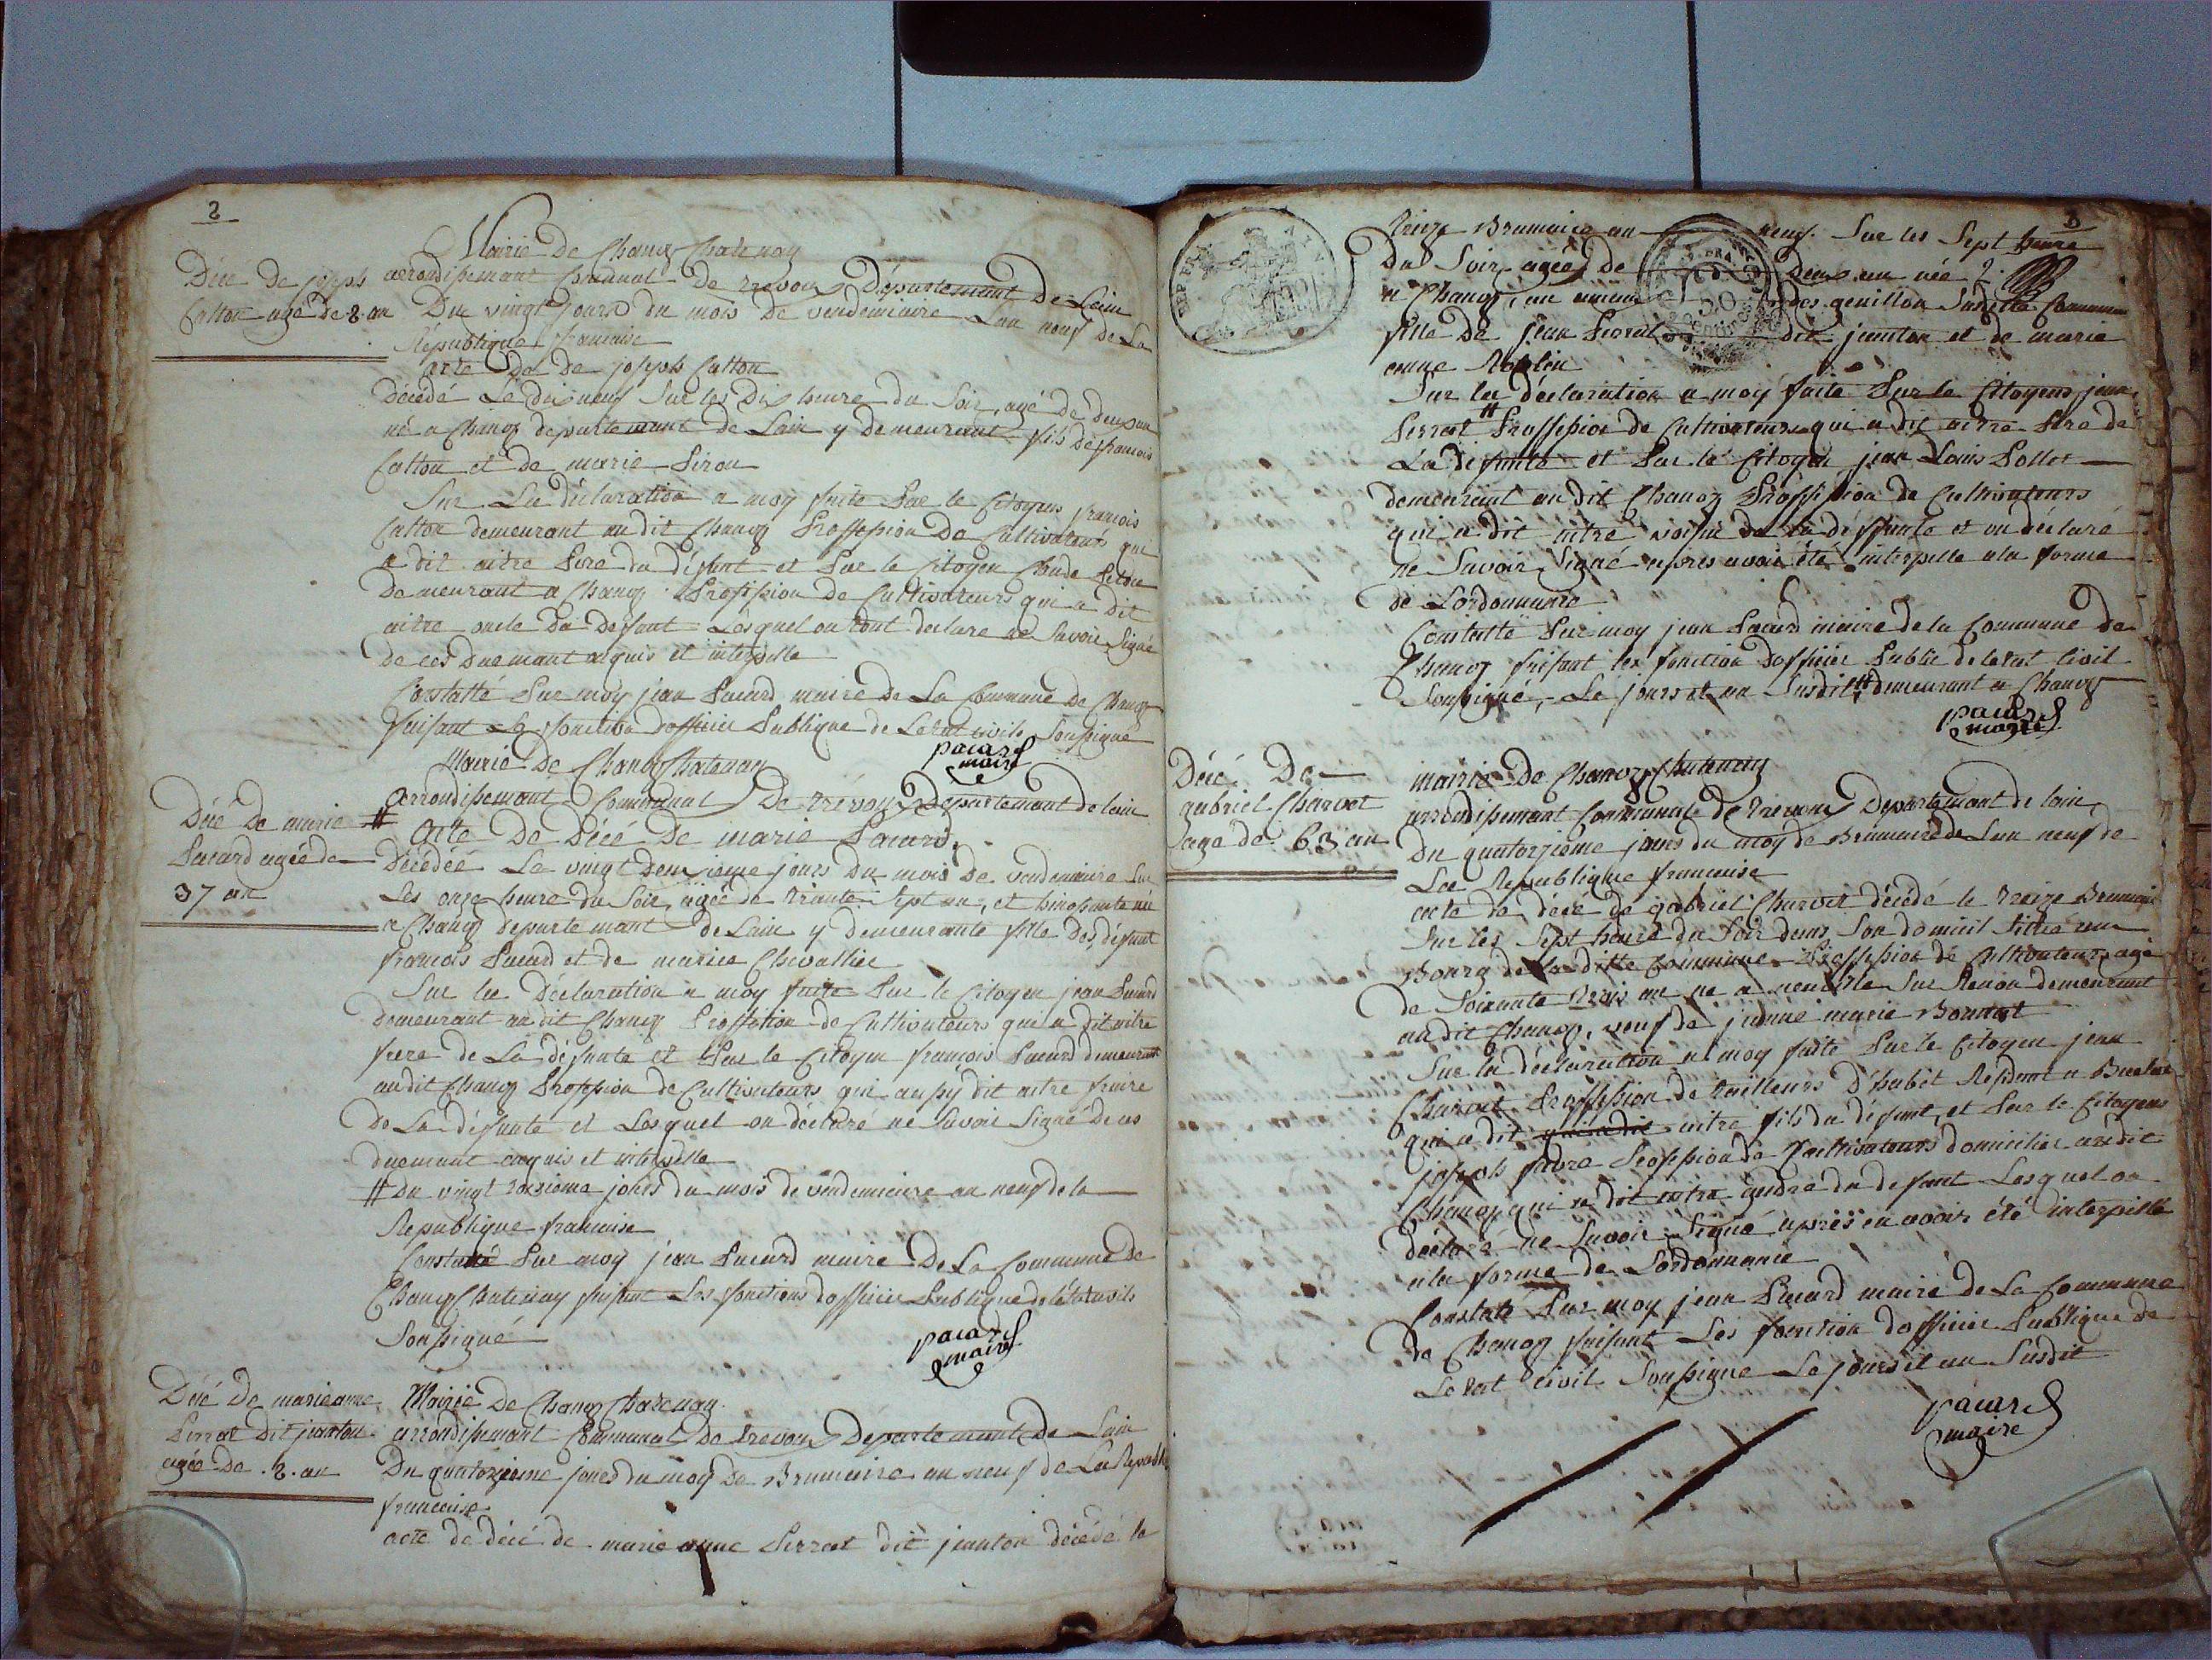 2
Mairie de Chanoz Chatenay
arrondissemant Communal de trevoux Département de Lain
Décé de joseph
Catton agé de 2 an
Du vingt jours du mois de vendemiaire Lan neuf de La
République francaise
acte De de joseph Catton
Décédé Le dix neuf Sur les Dix heure du Soir, agé de deux an
né a Chanoz departemant de Lain y demeurant fils de francois
Catton et de marie Piron
Sur La déclaration a moy faite Par le Citoyens francois
Catton demeurant au dit Chanoz Proffession De Cultivateurs qui
a dit aitre Pere du défunt et Par le Citoyen Claude
Demeurant a Chanoz Proffession de Cultivateurs qui a dit
aitre oncle du Defunt Lesquel on tout declare ne Savoir Signé
de ces duemant aquis et interpelle
Constatté Par moy jean Pacard maire de La Commune de Chanoz
faisant La fonction dofficier Publique de Letat civile Soussigné
pacard
maire
Mairie de Chanoz Chatenay
arrondissemant Communal De trévoux Departemant de lain
Décé De marie #
Pacard agée de
37 an
Acte De Décé De marie Pacard
Décédée Le vingt deuxieme jours Du mois De vendemiaire Sur
Les onze heure du Soir, agée de trante Sept an, et
a Chanoz departemant de Lain y demeurante fille Des défunt
francois Pacard et de marie Chevallier
Sur la Déclaration a moy faite Par le Citoyen jean Pacard
demeurant au dit Chanoz Proffession de Cultivateurs qui a dit aitre
frere de La défunte et Par le Citoyen françois Pacard demeurant
audit Chanoz Profession de Cultivateurs qui aussy dit aitre fraire
de La défunte et Lesquel on déclaré ne Savoir Signé de ces
duemant enquis et interpelle
# Du vingt roisieme jours du mois de vendemiaire an neuf de la
Republique francaise
Constaté Par moy jean Pacard maire De La Commune de
Chanoz Chatenay faisant Les fonctions dofficier Publique de létat civile
Soussigné
pacard
maire
Décé De marieanne
Perrat Dit jeanton
agée De .2. an
Mairie De Chanoz Chatenay
arrondissemant Communal De trevoux Departemant De Lain
Du quatorzieme jours du moy De Brumaire an neuf de La Republi
francaise
acte de décé de marie anne Perrat dit jeanton décédé le
3
treize Brumaire an neuf. Sur les Sept heure
Du Soir agée de Deux an née
a Chanoz, au des genillon Susditte Commune
fille De jean Perrat dit jeanton et de marie
anne
REP FRA
50
Sur la déclaration a moy faite Par le Citoyens jean
Perrat # Proffession de Cultivateurs qui a dit aitre Pere de
La défunte et Par le Citoyen jean Louis Pollet
demeurant au dit Chanoz Proffession de Cultivateurs
qui a dit aitre voisin de la deffunte et on déclaré
ne Savoir Signé apres avoir été interpelle a la forme
de Lordonnance
Constatté Par moy jean Pacard maire de la Commune de
Chanoz faisant les fonction dofficier Public de letat Civil
Soussigné, Le jours et an Susdit # demeurant a Chanoz
pacard
maire
Décé De
gabriel Charvet
age de 63 an
mairie De Chanoz Chatenay
arrondissemant Communale de trevoux Departemant de lain
Du quatorzieme jours du moy de Brumaire de Lan neuf de
La Republique francaise
acte de décé de gabriel Charvet décédé le treize Brumaire
Sur les Sept heure du Soir dans Son domicil Sittué au
Bourg de la ditte Commune Proffession de Cultivateurs agé
de Soixante trois an ne a neuville Sur Renon demeurant
au dit Chanoz, veuf de jeanne marie Bonnat
Sur la déclaration a moy faite Par le Citoyen jean
Charvet Proffession de tailleurs Dhabit Résidant a
qui a dit qui a dit aitre fils du défunt, et Par le Citoyens
joseph fabre Profession de Cultivateurs domicilie audit
Chanoz qui a dit aitre gendre du defunt Lesquel on
déclaré ne Savoir Signé après en avoir été interpellé
a la forme de Lordonnance
Constate Par moy jean Pacard maire de La Commune
de Chanoz faisant Les fonction dofficier Publique de
Letat Civil Soussigne Le jours et an Susdit
pacard
maire